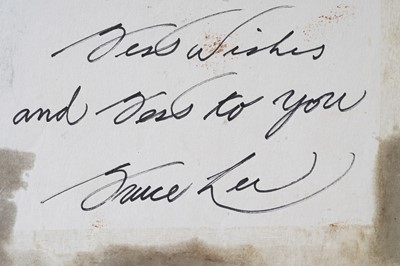 Best Wishes
and Best to you
Bruce Lee